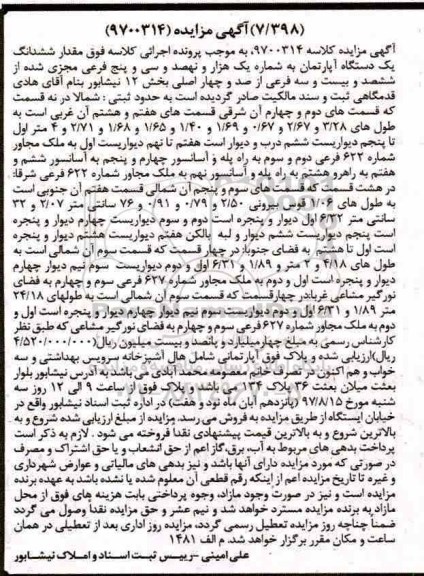 (۷/۳۹۸) آگهی مزایده (۹۷۰۰۳۱۴)
آگهی مزایده کلاسه ۹۷۰۰۳۱۴، به موجب پرونده اجرائی کلاسه فوق مقدار ششدانگ
یک دستگاه آپارتمان به شماره یک هزار و نهصد و سی و پنج فرعی مجزی شده از
ششصد و بیست و سه فرعی از صد و چهار اصلی بخش ۱۲ نیشابور بنام آقای هادی
قدمگاهی ثبت و سند مالکیت صادر گردیده است به حدود ثبتی : شمالا در نه قسمت
که قسمت های دوم و چهارم آن شرقی قسمت های هفتم و هشتم آن غربی است به
طول های ۳/۲۸ و ۲/۶۷ و ۰/۶۷ و ۱/۶۹ و ۱/۴۰ و ۱/۶۵ و ۱/۶۸ و ۲/۷۱ و ۴ متر اول
تا پنجم دیواریست ششم درب و دیوار است هفتم تا نهم دیواریست اول به ملک مجاور
شماره ۶۲۲ فرعی دوم و سوم به راه پله و آسانسور چهارم و پنجم به آسانسور ششم و
هفتم به راهرو هشتم به راه پله و آسانسور نهم به ملک مجاور شماره ۶۲۲ فرعی شرقا:
در هشت قسمت که قسمت های سوم و پنجم آن شمالی قسمت هفتم آن جنوبی است
به طول های ۱/۰۶ قوس بیرونی ۲/۵۰ و ۰/۷۹ و ۰/۹۱ و ۷۶ سانتی متر ۲/۰۷ و ۳۲
سانتی متر ۶/۳۲ اول دیوار و پنجره است دوم و سوم دیواریست چهارم دیوار و پنجره
است پنجم دیواریست ششم دیوار و لبه بالکن هفتم دیواریست هشتم دیوار و پنجره
است اول تا هشتم به فضای جنوبا: در چهار قسمت که قسمت سوم آن شمالی است به
طول های ۴/۱۸ و ۲ متر و ۱/۸۹ و ۶/۳۱ اول و دوم دیواریست سوم نیم دیوار چهارم
دیوار و پنجره است اول و دوم به ملک مجاور شماره ۶۲۷ فرعی سوم و چهارم به فضای
نورگیر مشاعی غربا:در چهارقسمت که قسمت سوم آن شمالی است به طولهای ۲۴/۱۸
متر ۱/۸۹ و ۶/۳۱ اول و دوم دیواریست سوم نیم دیوار چهارم دیوار و پنجره است اول و
دوم به ملک مجاور شماره ۶۲۷ فرعی سوم و چهارم به فضای نورگیر مشاعی که طبق نظر
کارشناس رسمی به مبلغ چهارمیلیارد و پانصد و بیست میلیون ریال(۴/۵۲۰/۰۰۰/۰۰۰
ریال)ارزیابی شده و پلاک فوق آپارتمانی شامل هال آشپزخانه سرویس بهداشتی و سه
خواب و هم اکنون در تصرف خانم معصومه محمد آبادی می باشد، به آدرس نیشابور بلوار
بعثت میلان بعثت ۳۶ پلاک ۱۳۴ می باشد و پلاک فوق از ساعت ۹ الی ۱۲ روز سه
شنبه مورخ ۹۷/۸/۱۵ (پانزدهم آبان ماه نود و هفت) در اداره ثبت اسناد نیشابور واقع در
خیابان ایستگاه از طریق مزایده به فروش می رسد. مزایده از مبلغ ارزیابی شده شروع و به
بالاترین شروع و به بالاترین قیمت پیشنهادی نقدا فروخته می شود . لازم به ذکر است
پرداخت بدهی های مربوط به آب، برق،گاز اعم از حق انشعاب و یا حق اشتراک و مصرف
در صورتی که مورد مزایده دارای آنها باشد و نیز بدهی های مالیاتی و عوارض شهرداری
و غیره تا تاریخ مزایده اعم از اینکه رقم قطعی آن معلوم شده یا نشده باشد به عهده برنده
مزایده است و نیز در صورت وجود مازاد، وجوه پرداختی بابت هزینه های فوق از محل
مازاد به برنده مزایده مسترد خواهد شد و نیم عشر و حق مزایده نقدا وصول می گردد
ضمنا چناچه روز مزایده تعطیل رسمی گردد، مزایده روز اداری بعد از تعطیلی در همان
ساعت و مکان مقرر برگزار خواهد شد. م الف ۱۴۸۱
علی امینی -رییس ثبت اسناد و املاک نیشابور